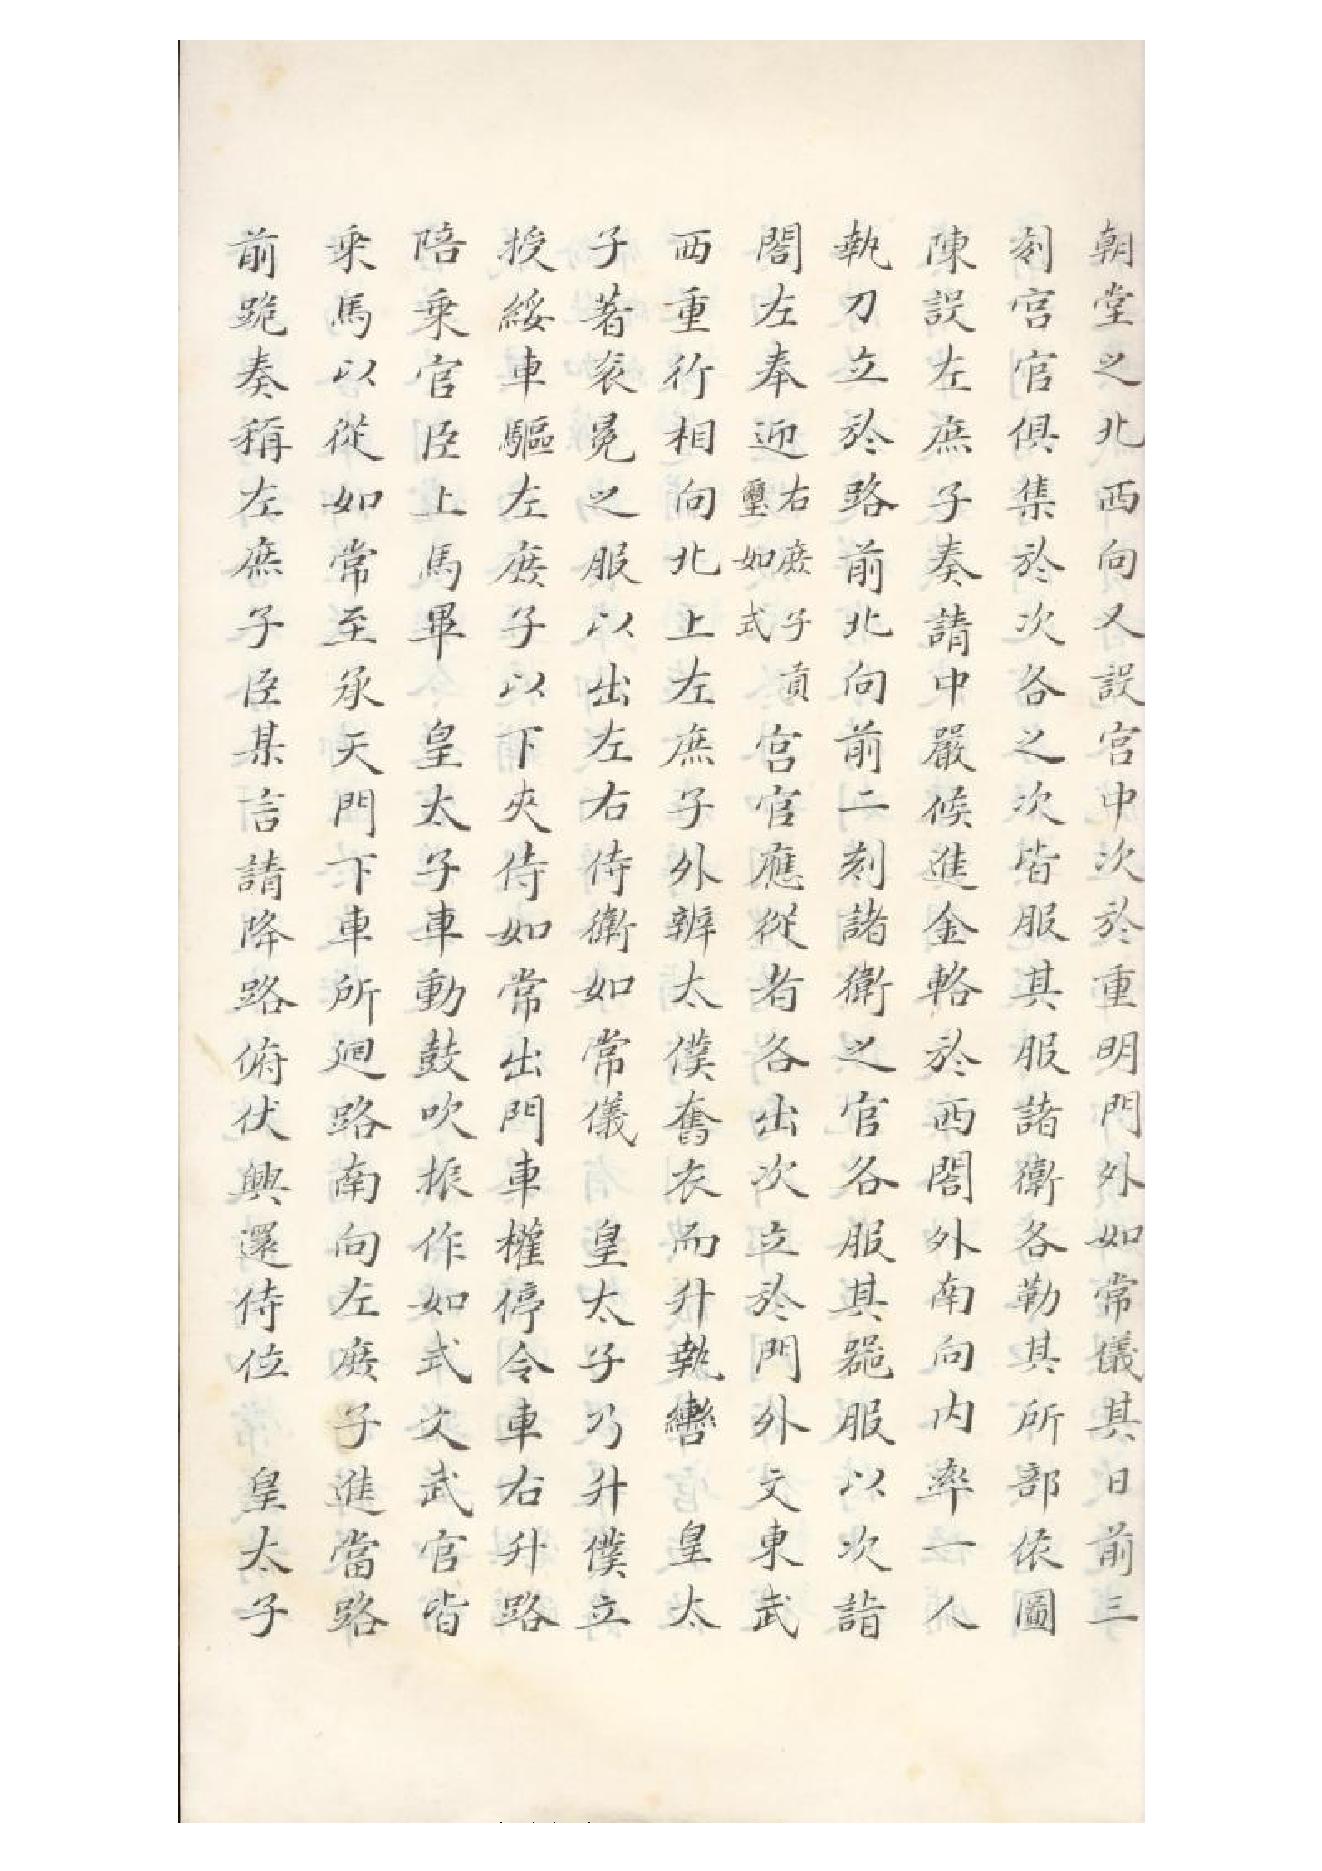 朝堂之北西向又誤宮中次於重明門外如常儀其日前三
刻宮官俱集於次各之次皆服其服諸衛各勒其所部依圖
陳誤左庶子奏請中嚴候進金輅於西閤外南向內率一人
執刀立於路前北向前二刻諸衛之官各服其器服以次詣
閤左奉迎右庶子賷璽如式宮官應從者各出次立於門外文東武
西重行相向北上左庶子外辦太僕奮衣而升執轡 皇太
子著衮冕之服以出左右侍衛如常儀 皇太子乃升僕立
授綏車驅左庶子以下夾侍如常出門車權停令車右升路
陪乘官臣上馬畢 皇太子車動鼓吹振作如式文武官皆
乘馬以從如常至承天門下車所迴路南向左庶子進當路
前跪奏稱左庶子臣某言請降路俯伏興還侍位 皇太子